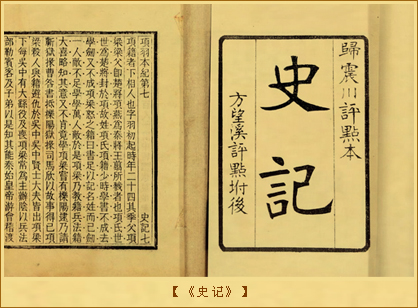 歸震川評點本
史記
方望溪評點坿後
項羽本紀第七 史記七
項籍者下相人也字羽初起時年二十四其季父項
梁梁父卽楚將項燕爲秦將王翦所戮者也項氏世
世爲楚將封於項故姓項氏項籍少時學書不成去
學劒又不成項梁怒之籍曰書足以記名姓而已劒
一人敵不足學學萬人敵於是項梁乃敎籍兵法籍
大喜略知其意又不肯竟學項梁嘗有櫟陽逮乃請
蘄獄掾曹咎書抵櫟陽獄掾司馬欣以故事得已項
梁殺人與籍避仇於吳中吳中賢士大夫皆出項梁
下每吳中有大繇役及喪項梁常爲主辦陰以兵法
部勒賓客及子弟以是知其能秦始皇帝游會稽渡
【《史记》】